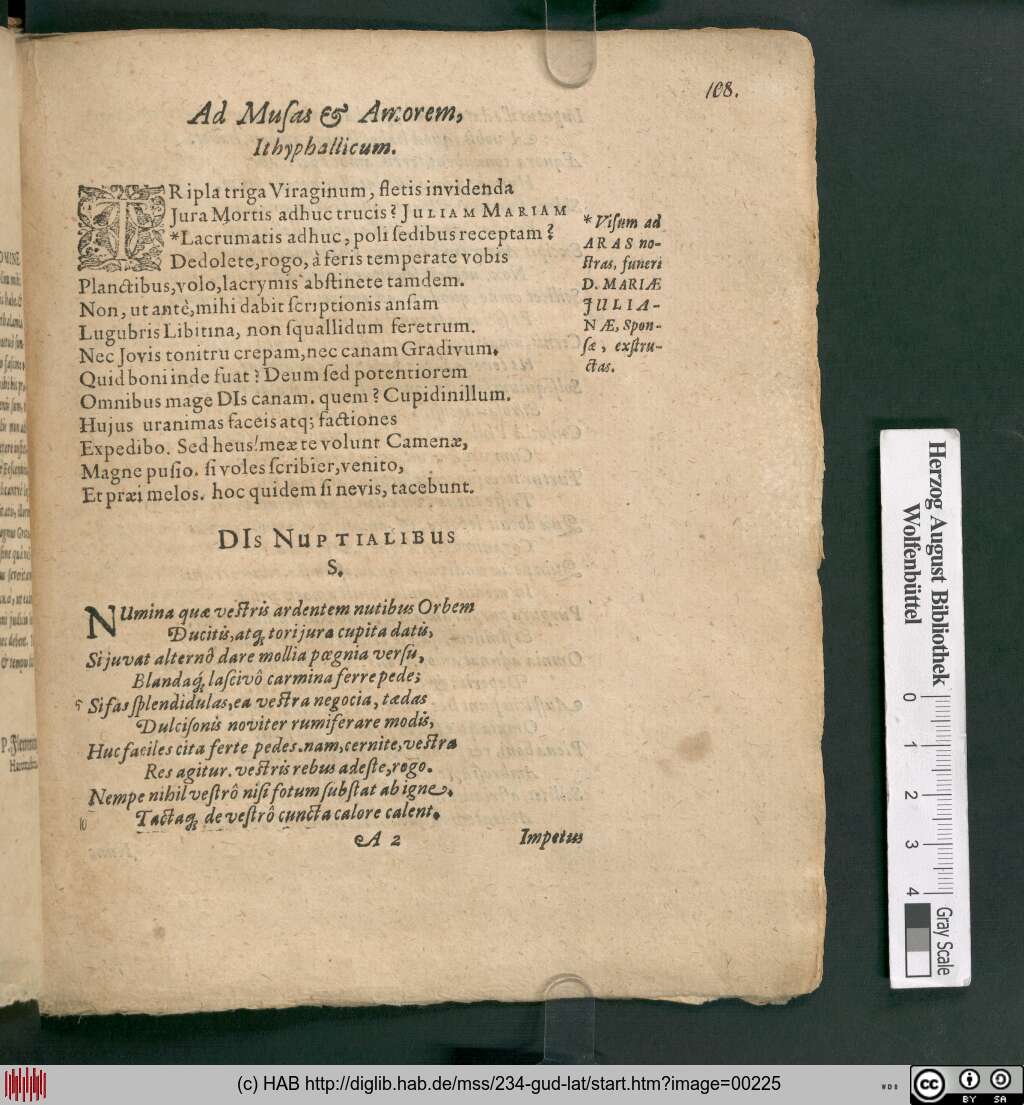 108.
Ad Muſas & Amorem,
Ithyphallicum.
TRipla triga Viraginum, fletis invidenda
Jura Mortis adhuc trucis? JULIAM MARIAM
*Lacrumatis adhuc, poli ſedibus receptam?
Dedolete, rogo, à feris temperate vobis
Planctibus, volo, lacrymis abſtinete tamdem.
Non, ut antè, mihi dabit ſcriptionis anſam
Lugubris Libitina, non ſquallidum feretrum.
Nec Jovis tonitru crepam, nec canam Gradivum.
Quid boni inde fuat? Deum ſed potentiorem
Omnibus mage DIs canam. quem? Cupidinillum.
Hujus uranimas faceis atq; factiones
Expedibo. Sed heus! meæ te volunt Camenæ,
Magne puſio. ſi voles ſcribier, venito,
Et præi melos. hoc quidem ſi nevis, tacebunt.
* Viſum ad
ARAS no-
ſtras, funeri
D. MARIÆ
JULIA-
NÆ, Spon-
ſæ, exſtru-
ctas.
DIs NUPTIALIBUS
S.
NUmina quæ veſtris ardentem nutibus Orbem
Ducitis, atq́; tori jura cupita datis,
Si juvat alternô dare mollia pœgnia verſu,
Blandaq́; laſcivô carmina ferre pede;
5 Si fas ſplendidulas, ea veſtra negocia, tædas
Dulciſonis noviter rumiferare modis,
Huc faciles cita ferte pedes. nam, cernite, veſtra
Res agitur. veſtris rebus adeſte, rogo.
Nempe nihil veſtrô niſi fotum ſubſtat ab igne.
10 Tactaq́; de veſtrô cuncta calore calent.
A 2
Impetus
Herzog August Bibliothek
Wolfenbüttel
0 1 2 3 4
Gray Scale
(c) HAB http://diglib.hab.de/mss/234-gud-lat/start.htm?image=00225
WDB
cc BY SA